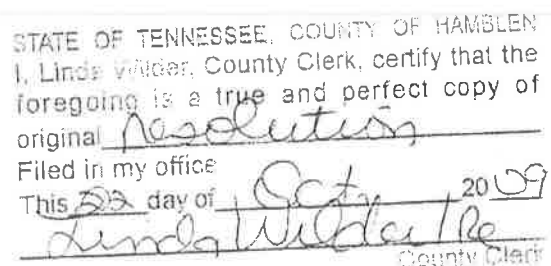 STATE OF TENNESSEE, COUNTY OF HAMBLEN
I, Linda Wilder, County Clerk, certify that the
foregoing is a true and perfect copy of
original Resolution
Filed in my office
This 22 day of Oct, 2009
Linda Wilder / Re
County Clerk